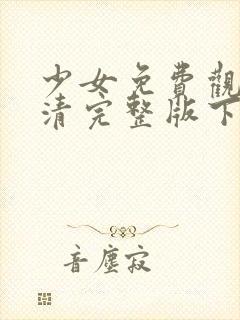 少女免費觀
清完整版下
音塵寂